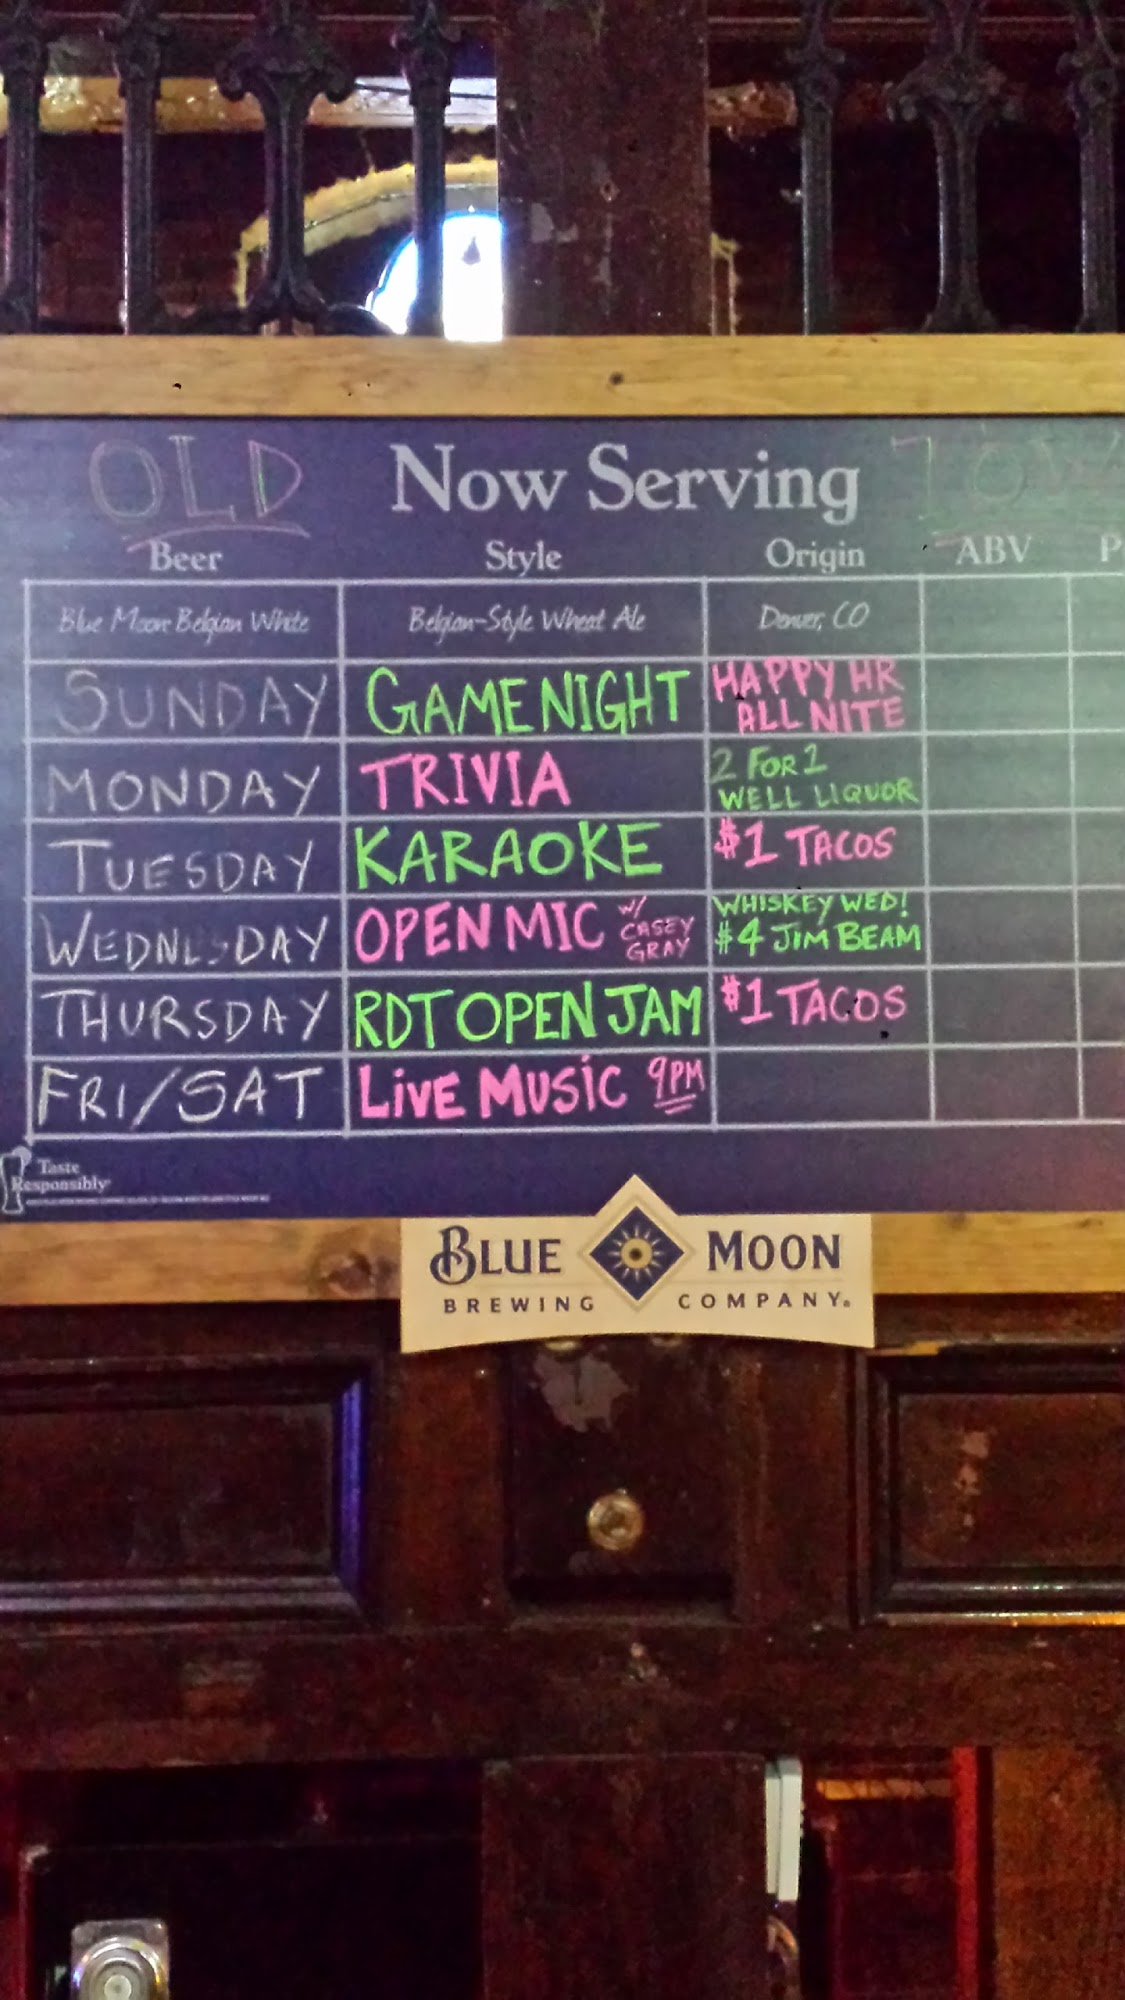 OLD Now Serving
Beer Style Origin ABV
Blue Moon Belgian White Belgian-Style Wheat Ale Denver, CO
SUNDAY GAME NIGHT HAPPY HR
ALL NITE
MONDAY TRIVIA 2 FOR 1
WELL LIQUOR
TUESDAY KARAOKE $1 TACOS
WEDNESDAY OPEN MIC W/
CASEY
GRAY
WHISKEY WED!
$4 JIM BEAM
THURSDAY RDT OPEN JAM $1 TACOS
FRI/SAT LIVE MUSIC 9PM
Taste
Responsibly
BLUE MOON
BREWING COMPANY®